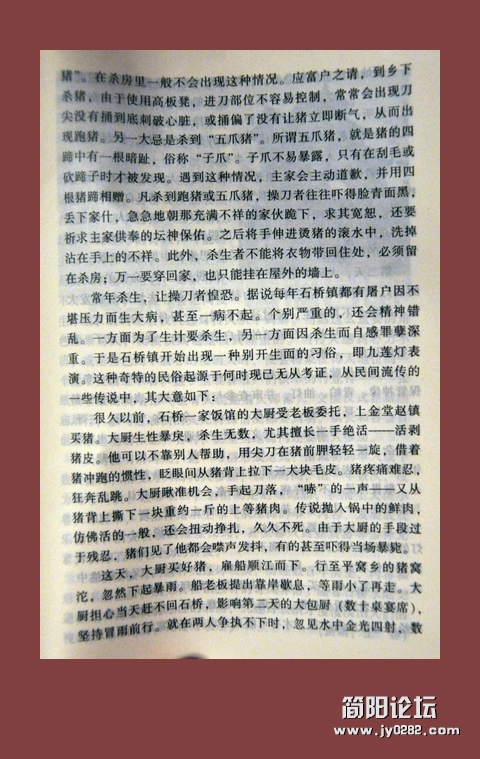 猪”。在杀房里一般不会出现这种情况。应富户之请，到乡下
杀猪，由于使用高板凳，进刀部位不容易控制，常常会出现刀
尖没有捅到底刺破心脏，或捅偏了没有让猪立即断气，从而出
现跑猪。另一大忌是杀到“五爪猪”。所谓五爪猪，就是猪的四
蹄中有一根暗趾，俗称“子爪”。子爪不易暴露，只有在刮毛或
砍蹄子时才被发现。遇到这种情况，主家会主动道歉，并用四
根猪蹄相赠。凡杀到跑猪或五爪猪，操刀者往往吓得脸青面黑，
丢下家什，急急地朝那充满不祥的家伙跪下，求其宽恕，还要
祈求主家供奉的坛神保佑。之后将手伸进烫猪的滚水中，洗掉
沾在手上的不祥。此外，杀生者不能将衣物带回住处，必须留
在杀房；万一要穿回家，也只能挂在屋外的墙上。
常年杀生，让操刀者惶恐。据说每年石桥镇都有屠户因不
堪压力而生大病，甚至一病不起。个别严重的，还会精神错
乱。一方面为了生计要杀生，另一方面因杀生而自感罪孽深
重。于是石桥镇开始出现一种别开生面的习俗，即九莲灯表
演。这种奇特的民俗起源于何时现已无从考证，从民间流传的
一些传说中，其大意如下：
很久以前，石桥一家饭馆的大厨受老板委托，上金堂赵镇
买猪。大厨生性暴戾，杀生无数，尤其擅长一手绝活——活剥
猪皮。他可以不靠别人帮助，用尖刀在猪前胛轻轻一旋，借着
猪冲跑的惯性，眨眼间从猪背上拉下一大块毛皮。猪疼痛难忍，
狂奔乱跳。大厨瞅准机会，手起刀落，“哧”的一声——又从
猪背上撕下一块重约一斤的上等猪肉。传说抛入锅中的鲜肉，
仿佛活的一般，还会扭动挣扎，久久不死。由于大厨的手段过
于残忍，猪们见了他都会噤声发抖，有的甚至吓得当场暴毙。
这天，大厨买好猪，雇船顺江而下。行至平窝乡的猪窝
沱，忽然下起暴雨。船老板提出靠岸歇息，等雨小了再走。大
厨担心当天赶不回石桥，影响第二天的大包厨（数十桌宴席），
坚持冒雨前行。就在两人争执不下时，忽见水中金光四射，数
简阳论坛
www.jy0282.com